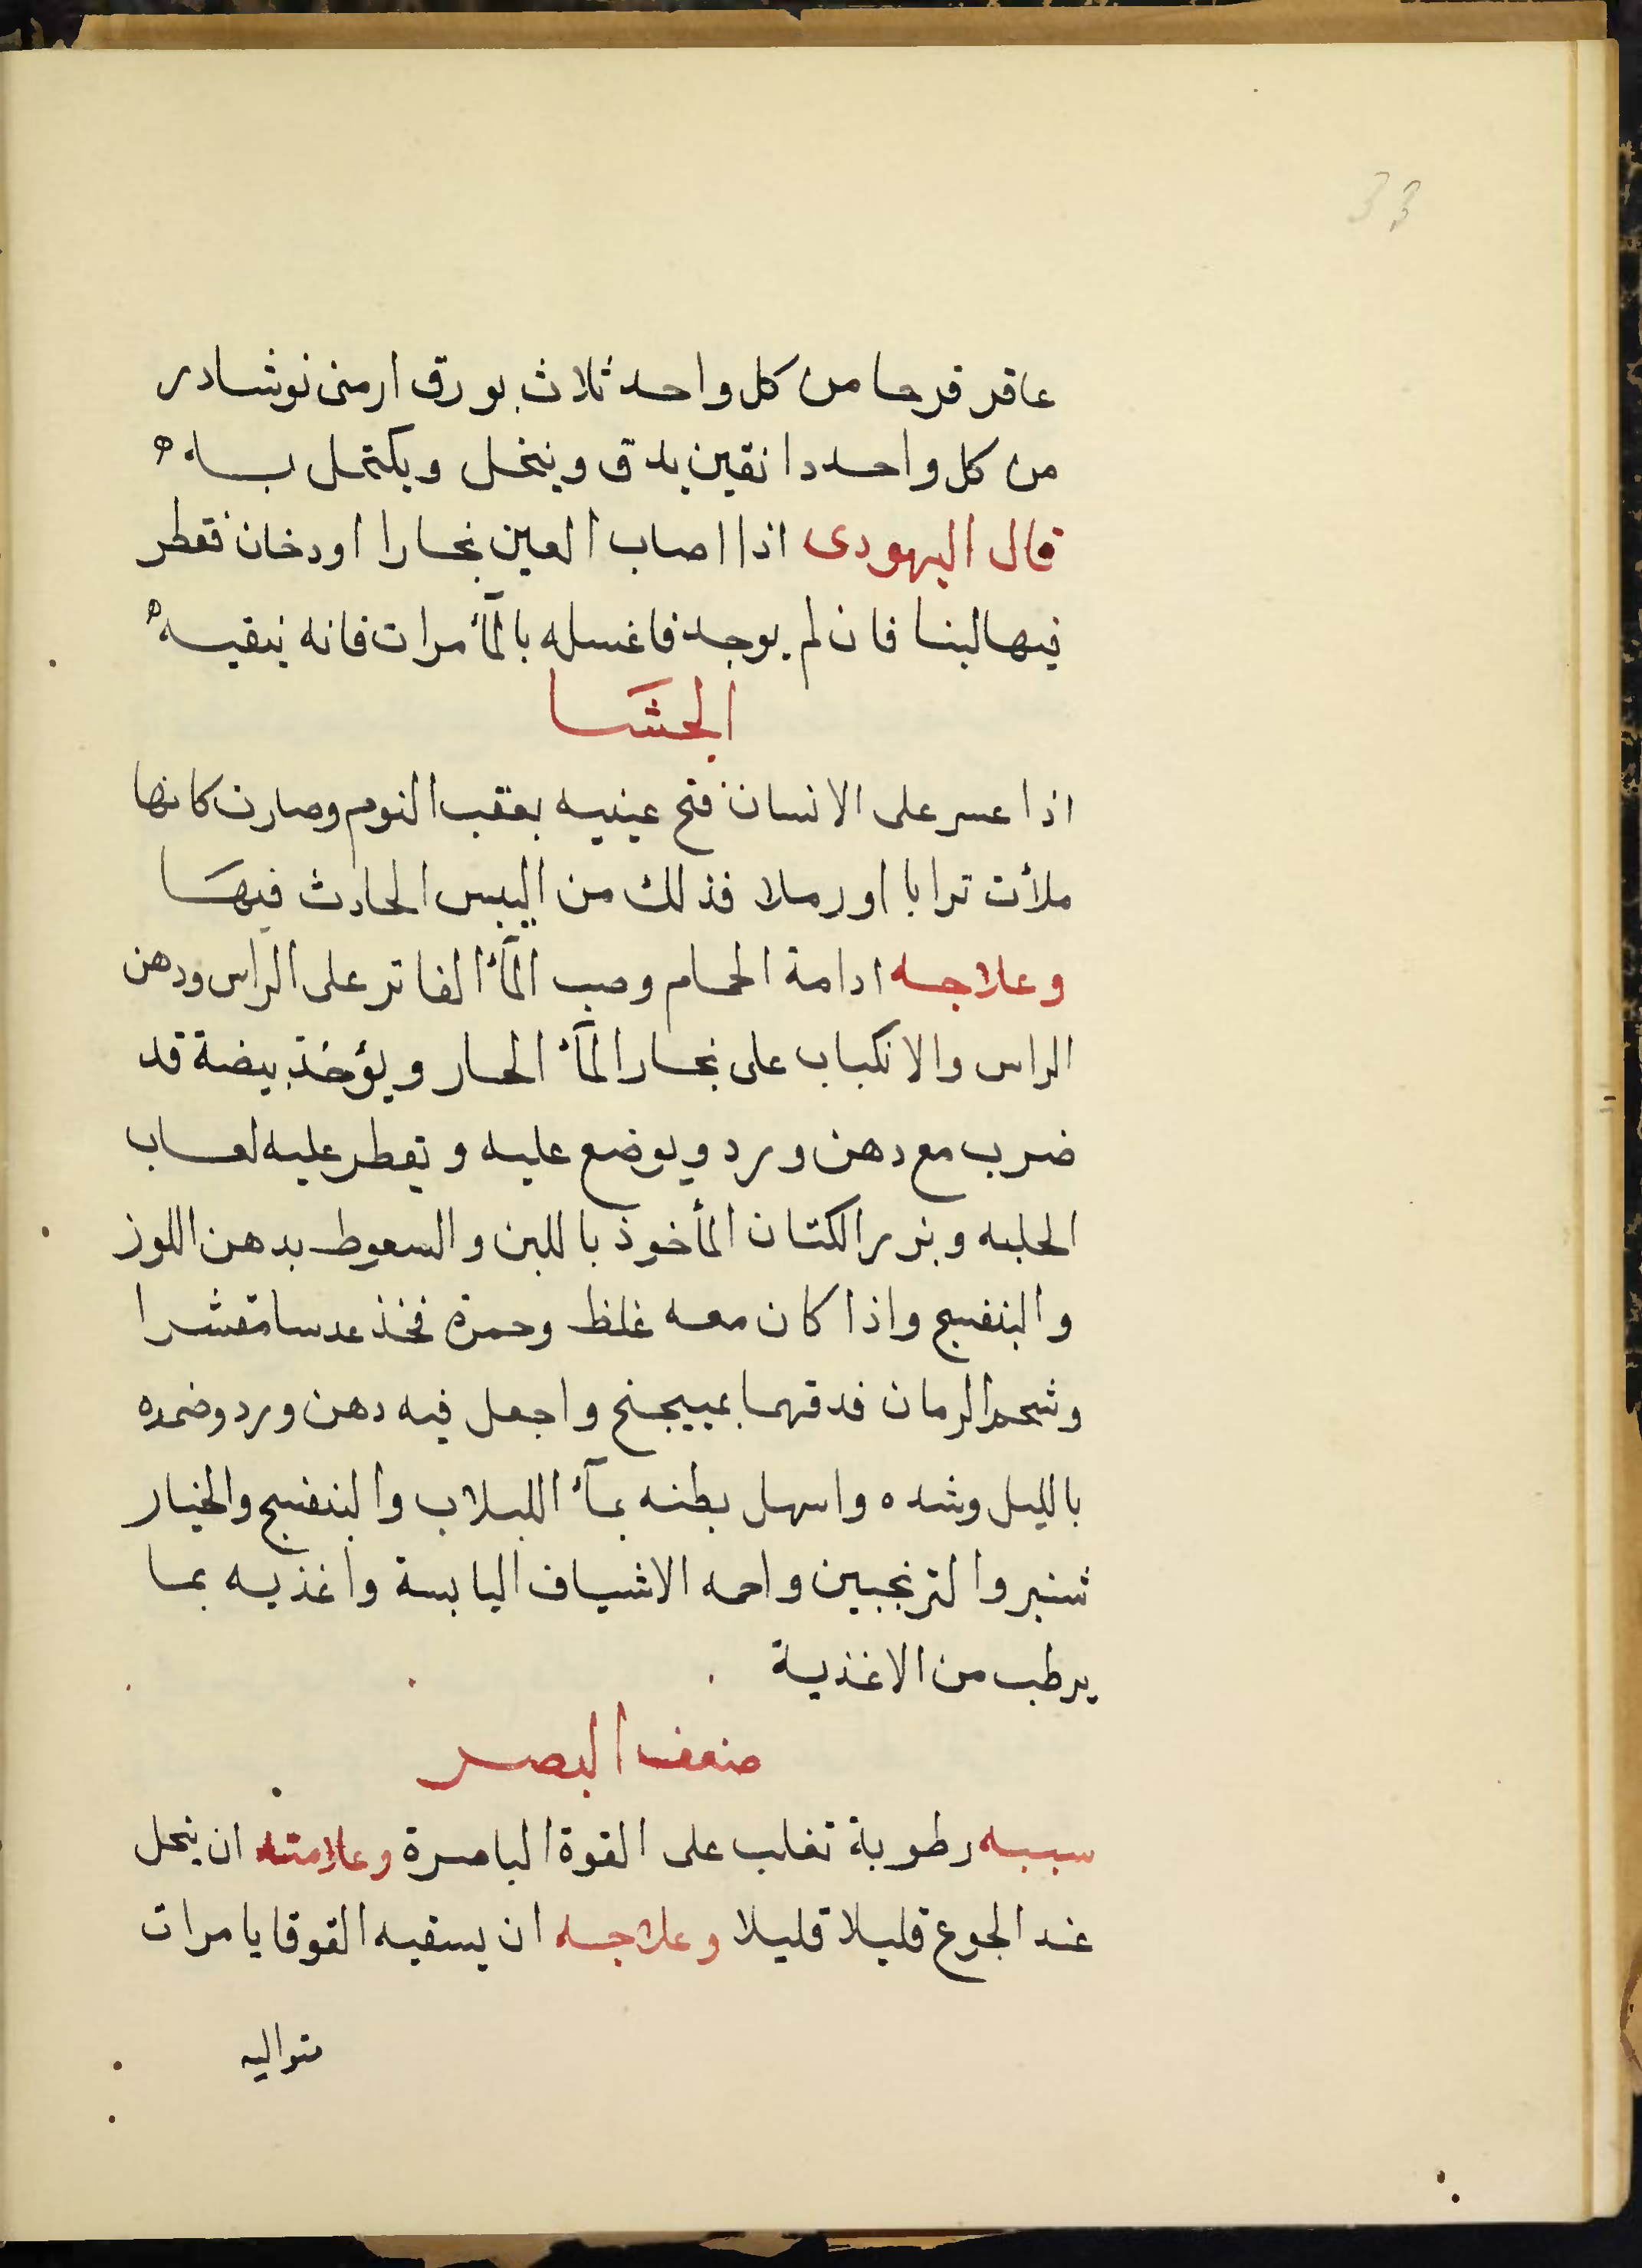 33
عاقر قرحا من كل واحد ثلاث بورق ارمنى نوشادر
من كل واحد دانقين يدق وينخل ويكتحل به
قال اليهودى اذا اصاب العين بخارا اودخان فقطر
فيها لبنا فان لم يوجد فاغسله بالمآء مرات فانه ينقيه
الجشا
اذا عسر على الانسان فتح عينيه بعقب النوم وصارت كانها
ملأت ترابا اورملا فذلك من اليبس الحادث فيها
وعلاجه ادامة الحمام وصب المآء الفاتر على الراس ودهن
الراس والانكباب على بخار المآء الحار ويؤخذ بيضة قد
ضرب مع دهن ورد ويوضع عليه وتقطر عليه لعاب
الحلبه وبزر الكتان المأخوذ باللبن والسعوط بدهن اللوز
والبنفسج واذا كان معه غلظ وحمرة فخذ عدسا مقشرا
وشحم الرمان فدقهما بميبجنح واجعل فيه دهن ورد وضمده
بالليل وشده واسهل بطنه بمآء اللبلاب والبنفسج والخيار
شنبر والترنجبين واحمه الاشياف اليابسة واغذيه بما
يرطب من الاغذية
ضعف البصر
سببه رطوبة تغلب على القوة الباصرة وعلامته ان ينحل
عند الجوع قليلا قليلا وعلاجه ان يسقيه القوقايا مرات
متواليه